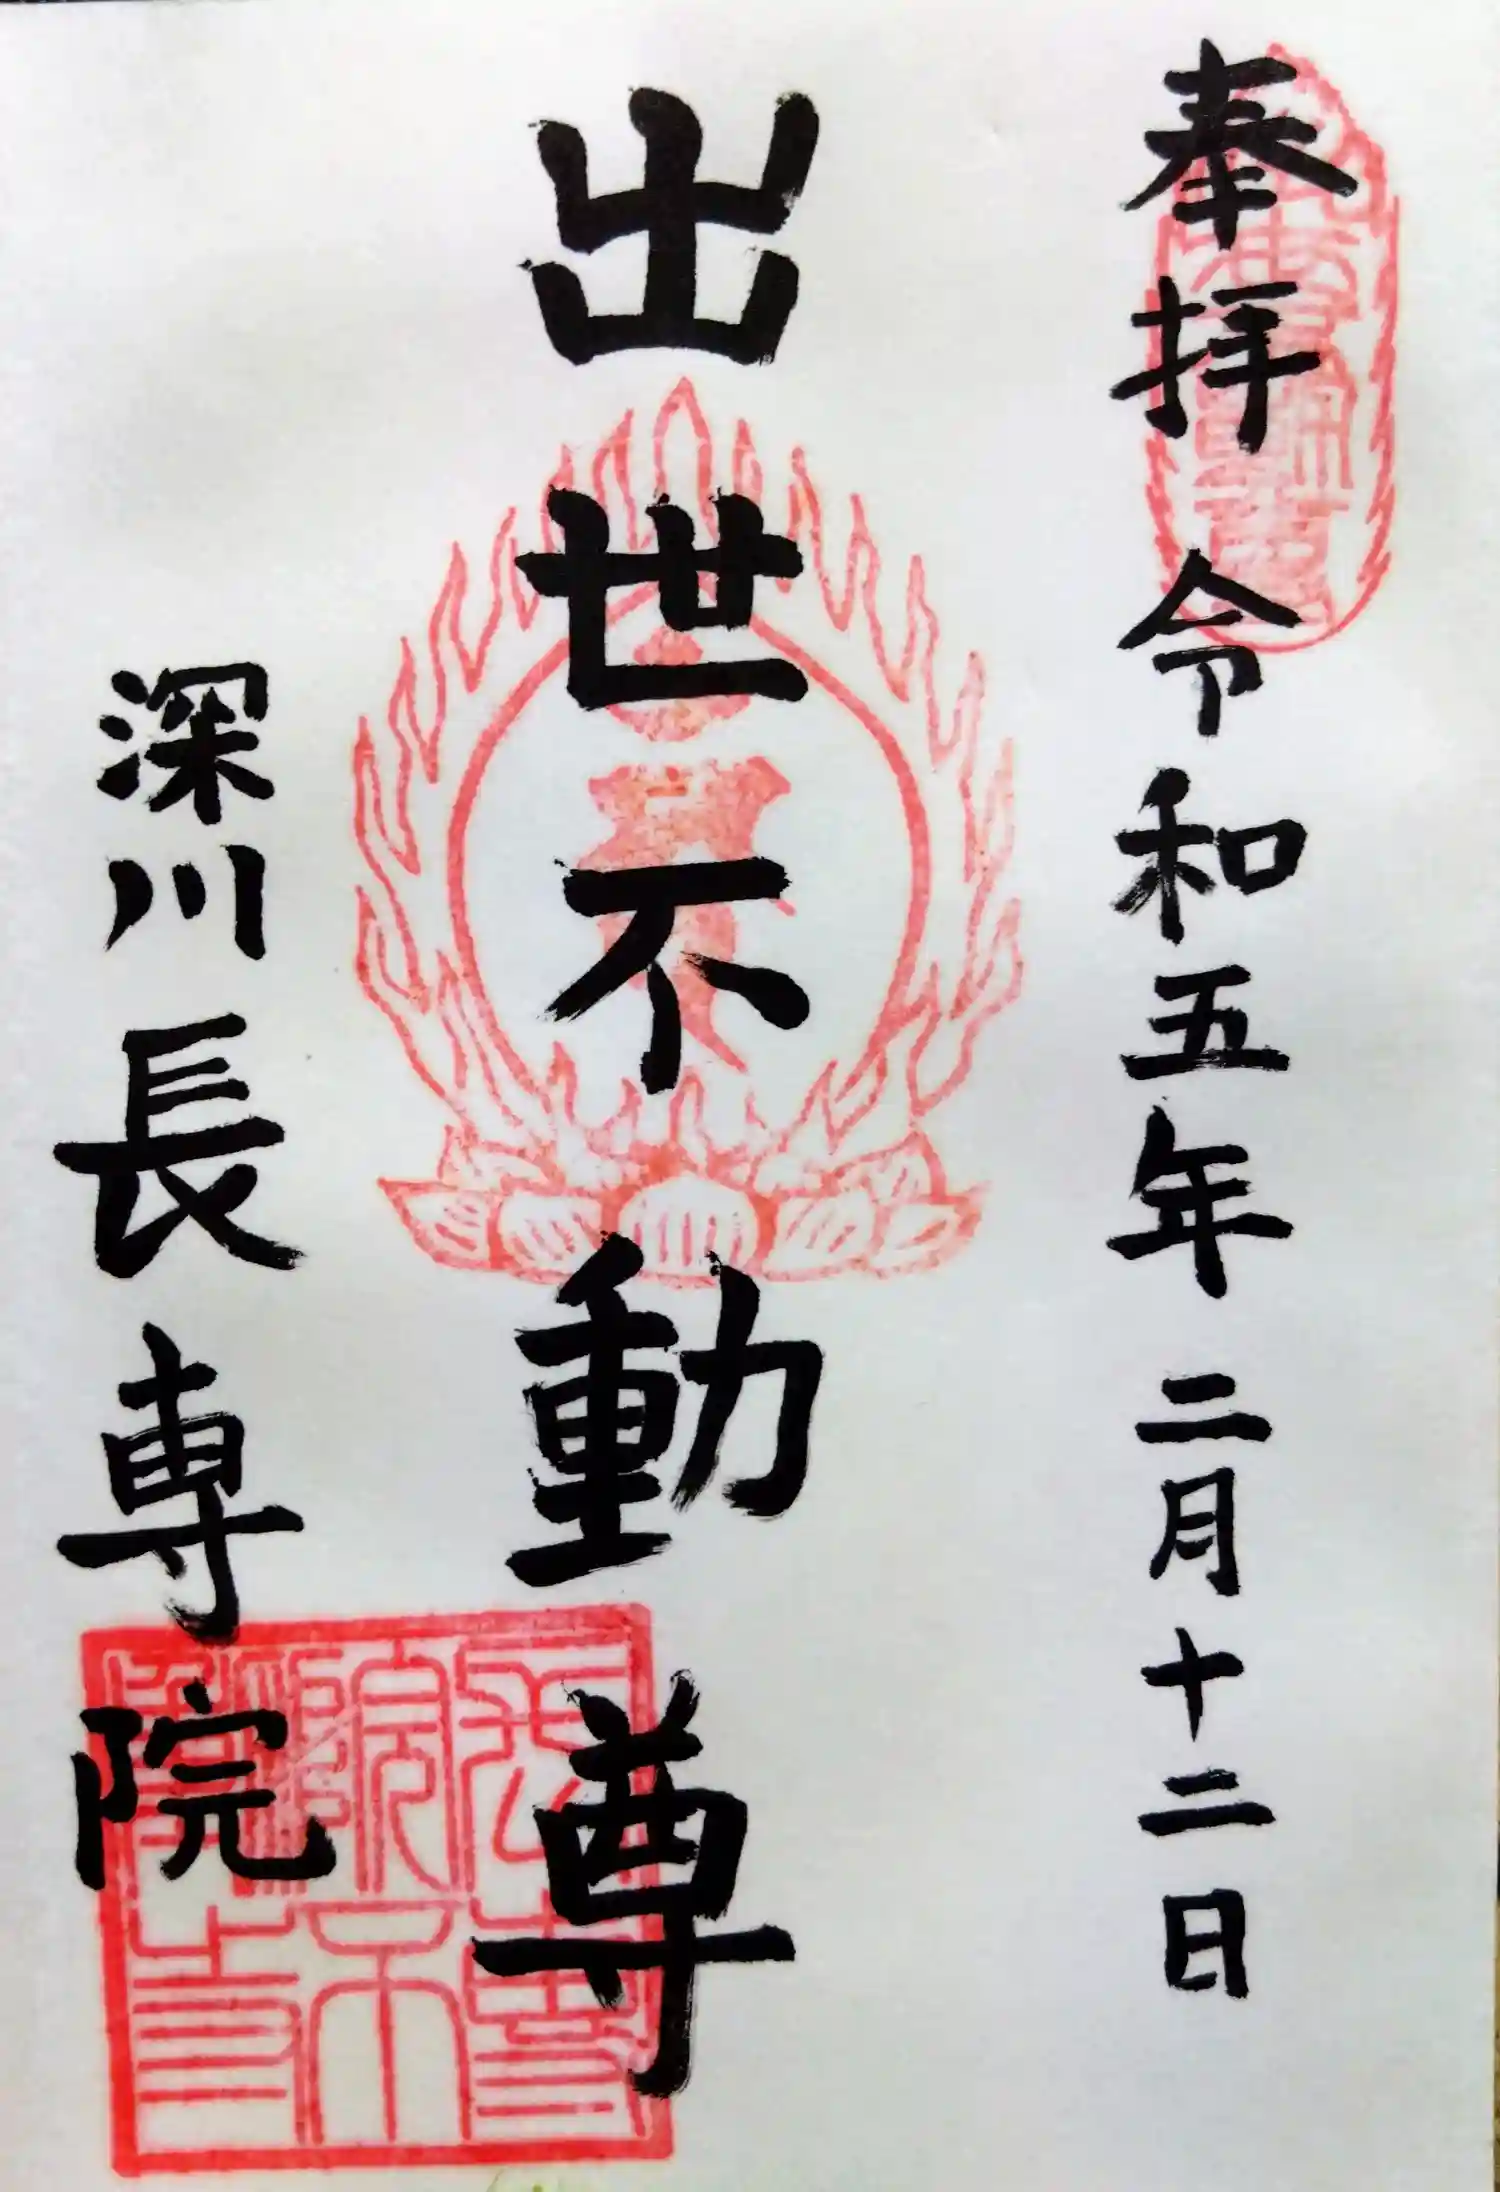 奉拝 令和五年 二月十二日
出世不動尊
深川 長専院